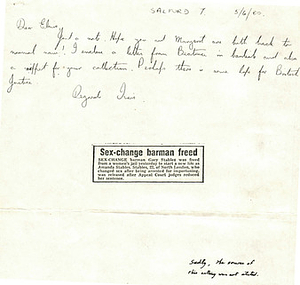 SALFORD 7. 3/6/80.
Dear Elma,
Just a note. Hope you and Margaret are both back to
normal now! I enclose a letter from Beatrice in and also
a for your collection. Perhaps there is some hope for British
Justice.
Regards
Sex-change barman freed
SEX-CHANGE barman Gary Stables was freed
from a women's jail yesterday to start a new life as
Amanda Stables. Stables, 22, of North London, who
changed sex after being arrested for importuning,
was released after Appeal Court judges reduced
his sentence.
Sadly, the source of
this cutting was not stated.